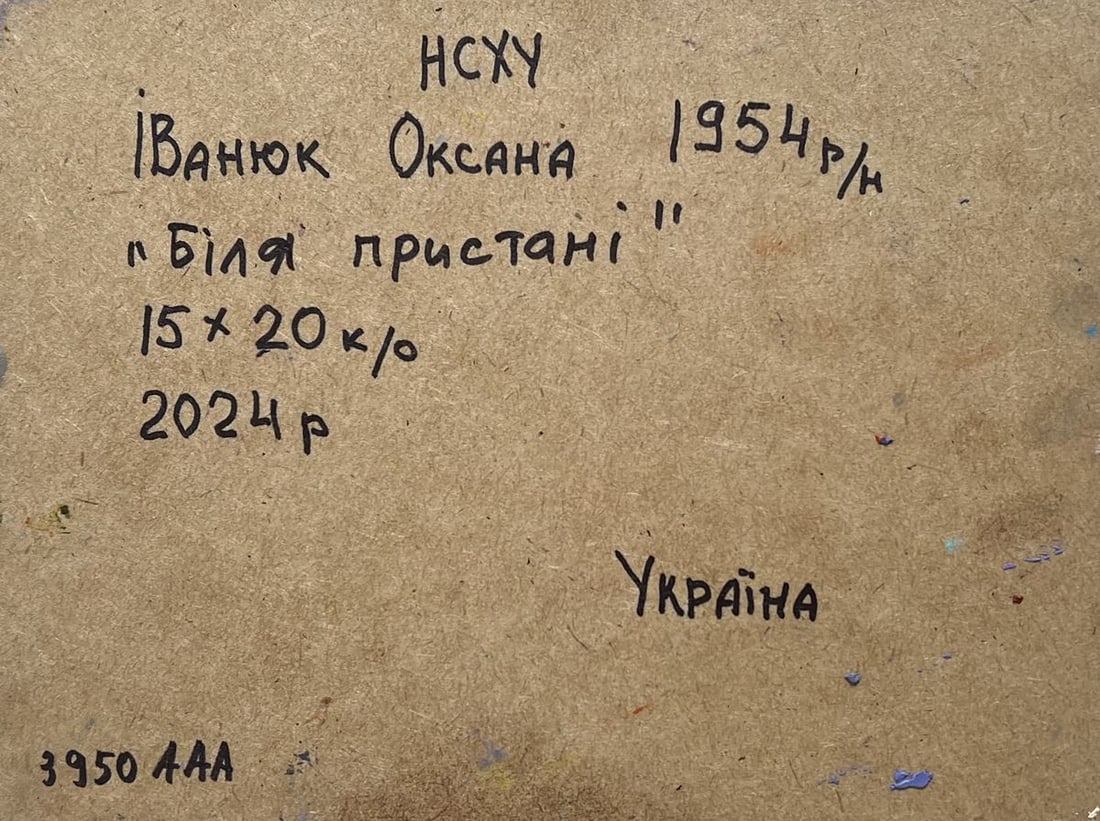 НСХУ
Іванюк Оксана 1954 р/н
„Біля пристані"
15 × 20 к/о
2024 р
Україна
3950 ААА